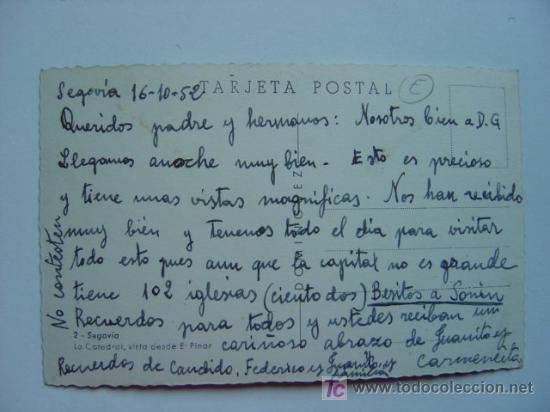 TARJETA POSTAL
E
Segovia 16-10-52
Queridos padre y hermanos: Nosotros bien a D.G
Llegamos anoche muy bien - Esto es precioso
y tiene unas vistas magnificas. Nos han recibido
muy bien y tenemos todo el dia para visitar
todo esto pues aun que la capital no es grande
tiene 102 iglesias (ciento dos) Besitos a
Recuerdos para todos y ustedes reciban un
cariñoso abrazo de Juanito y
Carmencita
Recuerdos de Candido, Federico y Juanito y
No contesten
2 - Segovia
La Catedral, vista desde El Pinar
todocoleccion
www.todocoleccion.net